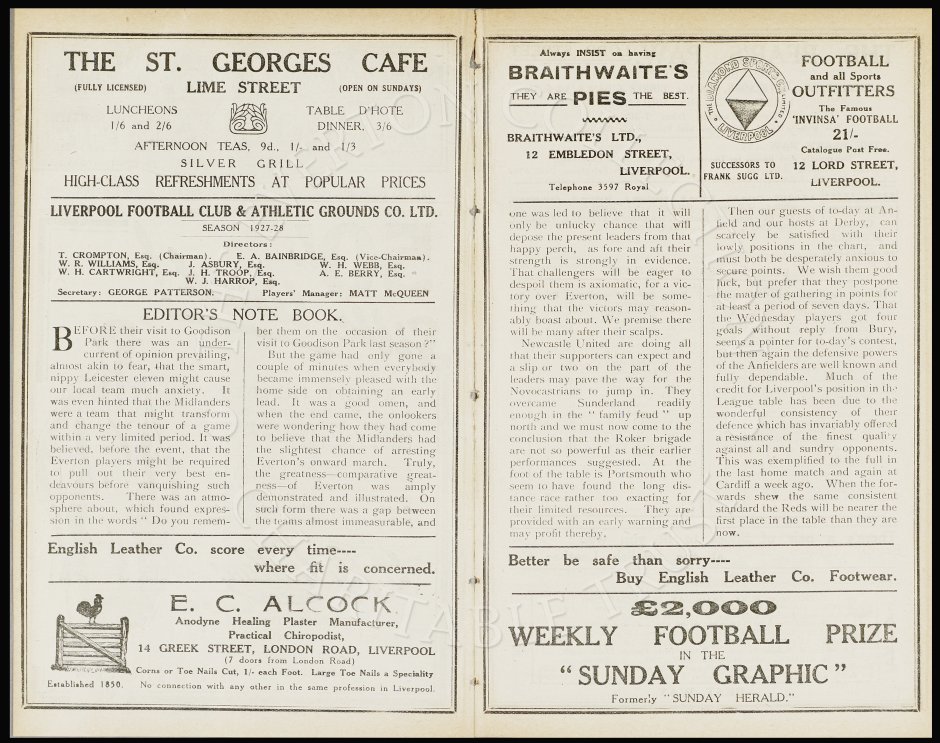 THE ST. GEORGES CAFE
(FULLY LICENSED) LIME STREET (OPEN ON SUNDAYS)
LUNCHEONS
1/6 and 2/6
TABLE D'HOTE
DINNER, 3/6
AFTERNOON TEAS, 9d., 1/- and 1/3
SILVER GRILL
HIGH-CLASS REFRESHMENTS AT POPULAR PRICES
LIVERPOOL FOOTBALL CLUB & ATHLETIC GROUNDS CO. LTD.
SEASON 1927-28
Directors:
T. CROMPTON, Esq. (Chairman). E. A. BAINBRIDGE, Esq. (Vice-Chairman).
W. R. WILLIAMS, Esq. J. ASBURY, Esq. W. H. WEBB, Esq.
W. H. CARTWRIGHT, Esq. J. H. TROOP, Esq. A. E. BERRY, Esq.
W. J. HARROP, Esq.
Secretary: GEORGE PATTERSON. Players' Manager: MATT McQUEEN
EDITOR'S NOTE BOOK.
BEFORE their visit to Goodison
Park there was an under-
current of opinion prevailing,
almost akin to fear, that the smart,
nippy Leicester eleven might cause
our local team much anxiety. It
was even hinted that the Midlanders
were a team that might transform
and change the tenour of a game
within a very limited period. It was
believed, before the event, that the
Everton players might be required
to pull out their very best en-
deavours before vanquishing such
opponents. There was an atmo-
sphere about, which found expres-
sion in the words " Do you remem-
ber them on the occasion of their
visit to Goodison Park last season ?"
But the game had only gone a
couple of minutes when everybody
became immensely pleased with the
home side on obtaining an early
lead. It was a good omen, and
when the end came, the onlookers
were wondering how they had come
to believe that the Midlanders had
the slightest chance of arresting
Everton's onward march. Truly,
the greatness—comparative great-
ness—of Everton was amply
demonstrated and illustrated. On
such form there was a gap between
the teams almost immeasurable, and
English Leather Co. score every time----
where fit is concerned.
E. C. ALCOCK
Anodyne Healing Plaster Manufacturer,
Practical Chiropodist,
14 GREEK STREET, LONDON ROAD, LIVERPOOL
(7 doors from London Road)
Corns or Toe Nails Cut, 1/- each Foot. Large Toe Nails a Speciality
Established 1850. No connection with any other in the same profession in Liverpool.
Always INSIST on having
BRAITHWAITE'S
THEY ARE PIES THE BEST.
BRAITHWAITE'S LTD.,
12 EMBLEDON STREET,
LIVERPOOL.
Telephone 3597 Royal
THE DIAMOND SPORTS Co. Limited
LIVERPOOL
SUCCESSORS TO
FRANK SUGG LTD.
FOOTBALL
and all Sports
OUTFITTERS
The Famous
'INVINSA' FOOTBALL
21/-
Catalogue Post Free.
12 LORD STREET,
LIVERPOOL.
one was led to believe that it will
only be unlucky chance that will
depose the present leaders from that
happy perch, as fore and aft their
strength is strongly in evidence.
That challengers will be eager to
despoil them is axiomatic, for a vic-
tory over Everton, will be some-
thing that the victors may reason-
ably boast about. We premise there
will be many after their scalps.
Newcastle United are doing all
that their supporters can expect and
a slip or two on the part of the
leaders may pave the way for the
Novocastrians to jump in. They
overcame Sunderland readily
enough in the " family feud " up
north and we must now come to the
conclusion that the Roker brigade
are not so powerful as their earlier
performances suggested. At the
foot of the table is Portsmouth who
seem to have found the long dis-
tance race rather too exacting for
their limited resources. They are
provided with an early warning and
may profit thereby.
Then our guests of to-day at An-
field and our hosts at Derby, can
scarcely be satisfied with their
lowly positions in the chart, and
must both be desperately anxious to
secure points. We wish them good
luck, but prefer that they postpone
the matter of gathering in points for
at least a period of seven days. That
the Wednesday players got four
goals without reply from Bury,
seems a pointer for to-day's contest,
but then again the defensive powers
of the Anfielders are well known and
fully dependable. Much of the
credit for Liverpool's position in the
League table has been due to the
wonderful consistency of their
defence which has invariably offered
a resistance of the finest quality
against all and sundry opponents.
This was exemplified to the full in
the last home match and again at
Cardiff a week ago. When the for-
wards shew the same consistent
standard the Reds will be nearer the
first place in the table than they are
now.
Better be safe than sorry----
Buy English Leather Co. Footwear.
£2,000
WEEKLY FOOTBALL PRIZE
IN THE
"SUNDAY GRAPHIC"
Formerly "SUNDAY HERALD."